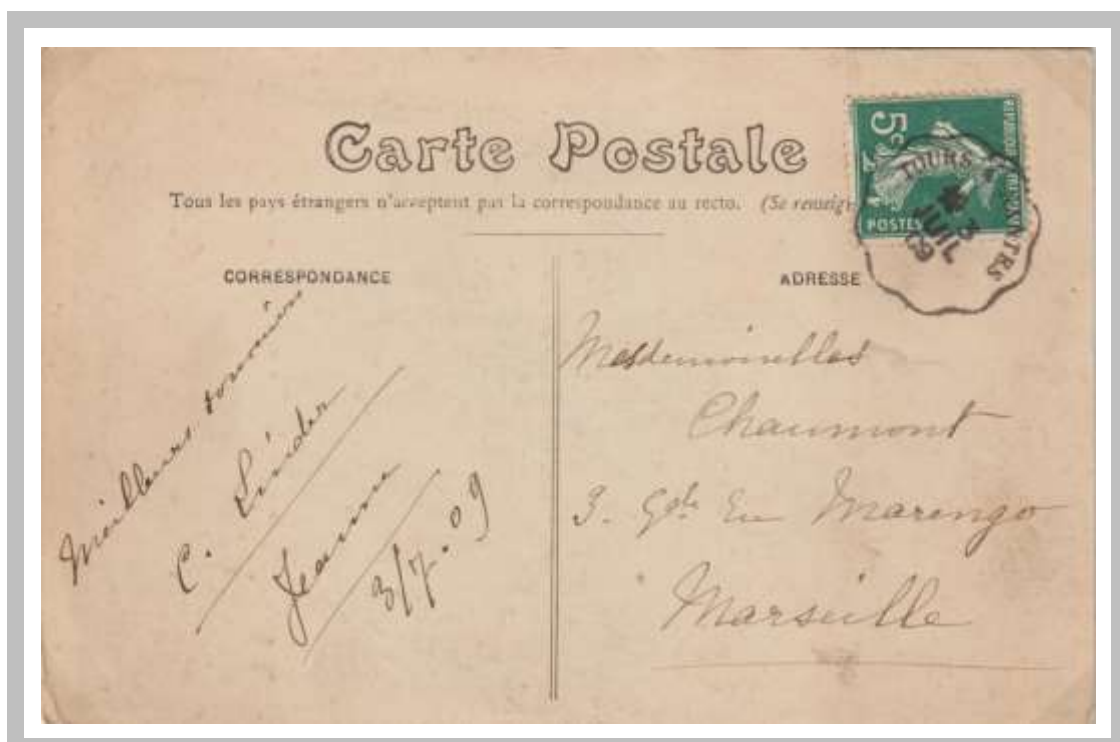 Carte Postale
Tous les pays étrangers n'acceptent pas la correspondance au recto. (Se renseig
CORRESPONDANCE
ADRESSE
5c
POSTES
TOURS
3
JUIL
09
Meilleurs souvenirs
C. Linder
Jeanne
3/7.09
Mesdemoiselles
Chaumont
3. Gde Rue Marengo
Marseille